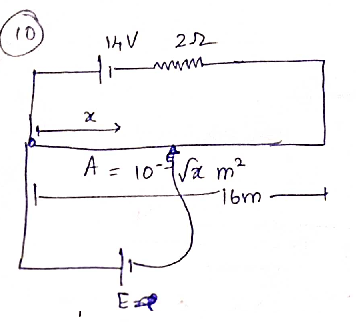 10
14V 2Ω
x
A = 10⁻⁵√x m²
16m
E